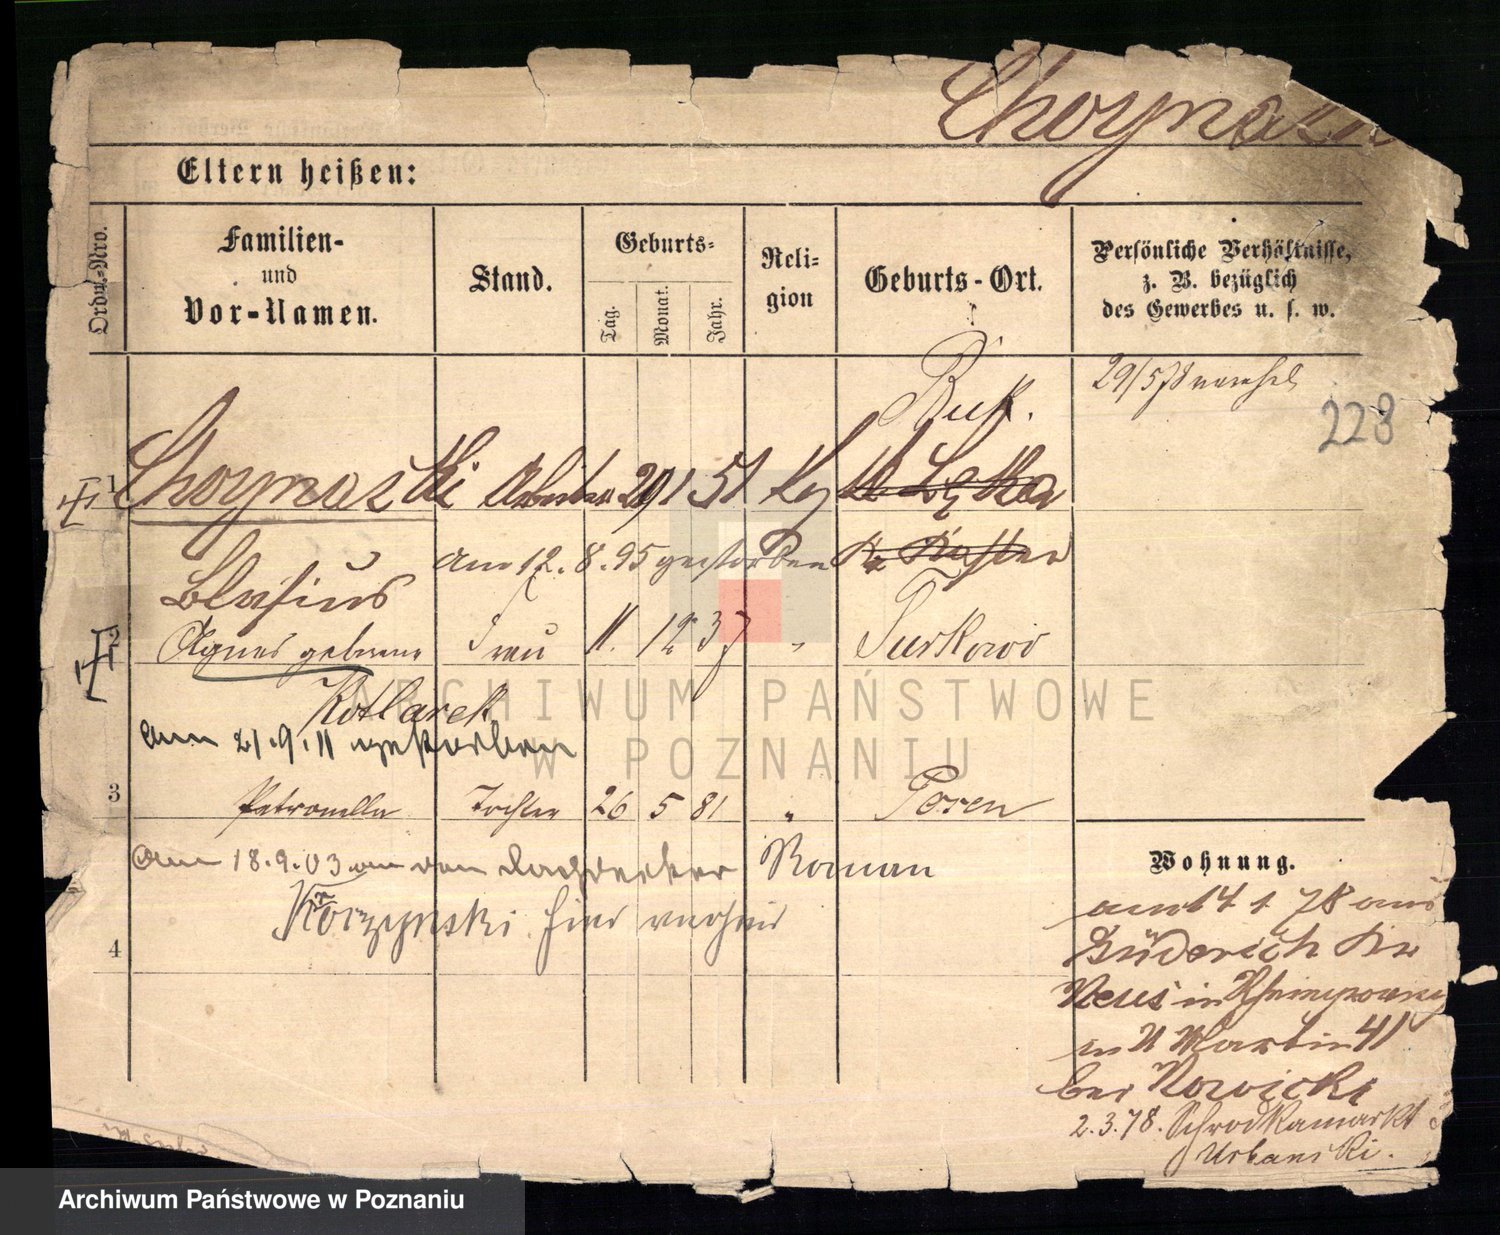 Choynaski
Eltern heißen:
Ordn.-Nro.
Familien-
und
Vor-Namen.
Stand.
Geburts-
Tag.
Monat.
Jahr.
Reli-
gion
Geburts-Ort.
Persönliche Verhältnisse,
z. B. bezüglich
des Gewerbes u. s. w.
Buk.
29/5 78
228
1 Choynaski Arbeiter 29 1 51
am 12.8.95 gestorben
Blasius
2 Agnes geborene Frau 11. 12 37 " Turkowo
Kotlarek
am 21.9.11 gestorben
3 Petronella Tochter 26 5 81 " Posen
am 18.9.03 an den Dachdecker Roman
Korzynski hier verheir
4
Wohnung.
am 14 1 78 aus
Büderich Kr
Neus in Rheinprovinz
Martin 41
bei Nowicki
2.3.78. Schrodkamarkt
Urbanski.
ARCHIWUM PAŃSTWOWE
W POZNANIU
Archiwum Państwowe w Poznaniu